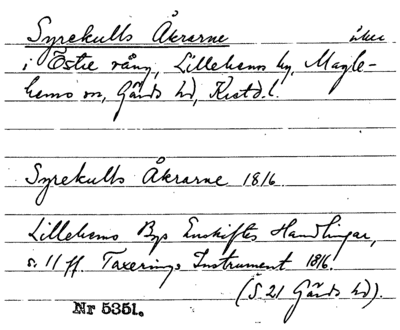 Syrekulls Åkrarne åker
i Östre vång, Lillehems by, Magle-
hems sn, Gärds hd, Kristd. l.
Syrekulls Åkrarne 1816.
Lillehems Bys Enskiftes Handlingar,
s. 11 ff. Taxerings Instrument 1816.
(S 21 Gärds hd).
Nr 5351.